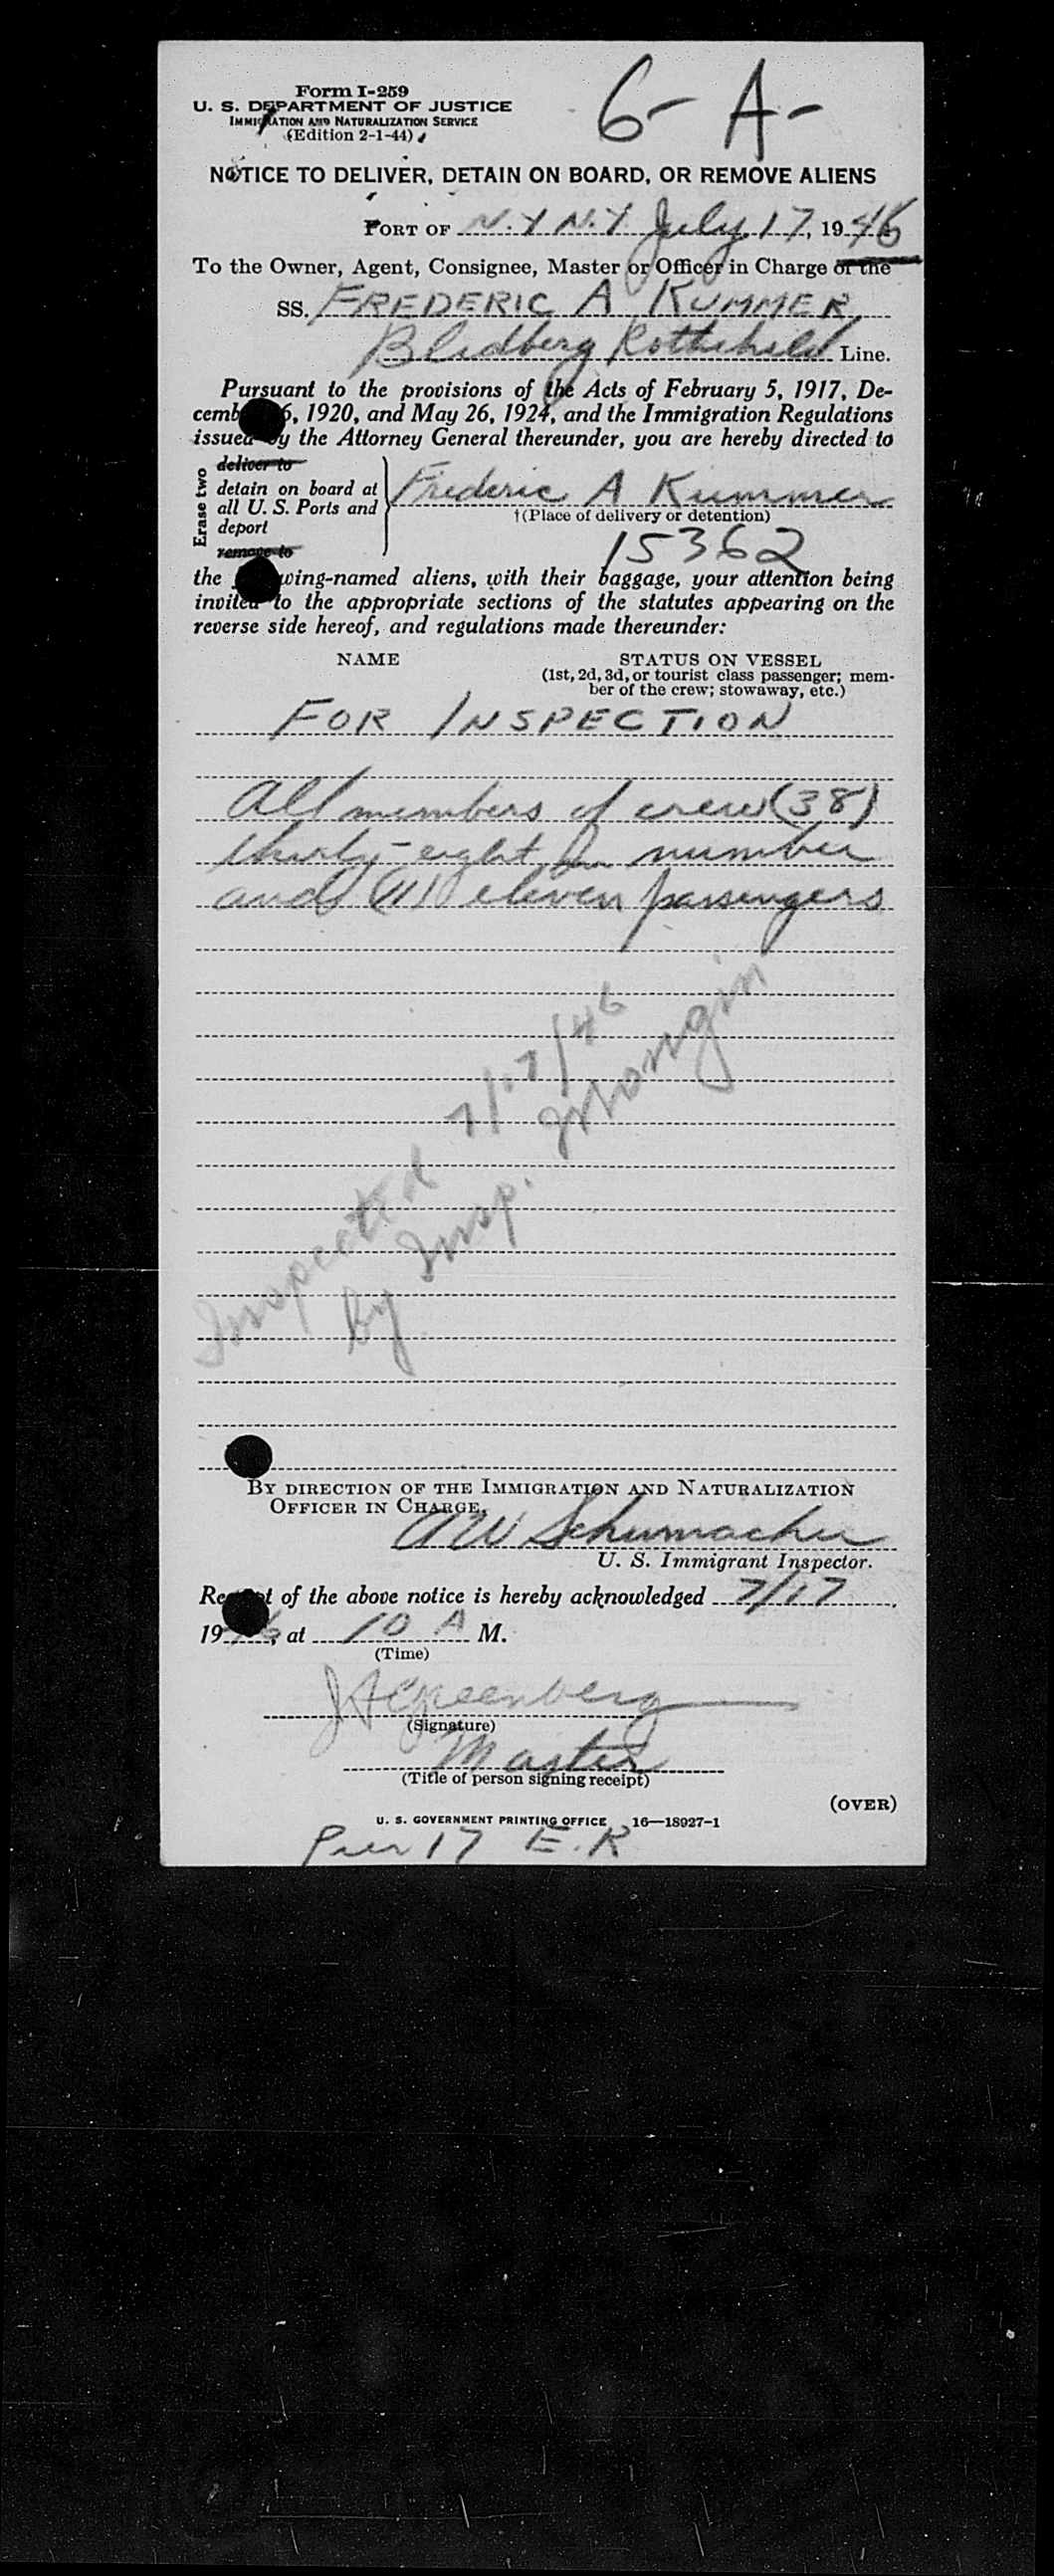 Form I-259
U. S. DEPARTMENT OF JUSTICE
IMMIGRATION AND NATURALIZATION SERVICE
(Edition 2-1-44)
6- A-
NOTICE TO DELIVER, DETAIN ON BOARD, OR REMOVE ALIENS
PORT OF N.Y N.Y July 17, 1946
To the Owner, Agent, Consignee, Master or Officer in Charge of the
SS. FREDERIC A KUMMER,
Blidberg Rothchild Line.
Pursuant to the provisions of the Acts of February 5, 1917, De-
cemb 6, 1920, and May 26, 1924, and the Immigration Regulations
issued by the Attorney General thereunder, you are hereby directed to
Erase two
deliver to
detain on board at
all U. S. Ports and
deport
remove to
Frederic A Kummer
†(Place of delivery or detention)
15362
the wing-named aliens, with their baggage, your attention being
invited to the appropriate sections of the statutes appearing on the
reverse side hereof, and regulations made thereunder:
NAME STATUS ON VESSEL
(1st, 2d, 3d, or tourist class passenger; mem-
ber of the crew; stowaway, etc.)
FOR INSPECTION
All members of crew (38)
thirty-eight in number
and (11) eleven passengers
Inspected 7/17/46
By Insp.
BY DIRECTION OF THE IMMIGRATION AND NATURALIZATION
OFFICER IN CHARGE,
A W Schumacher
U. S. Immigrant Inspector.
Receipt of the above notice is hereby acknowledged 7/17,
1946, at 10 A M.
(Time)
J A Greenberg
(Signature)
Master
(Title of person signing receipt)
(OVER)
U. S. GOVERNMENT PRINTING OFFICE 16—18927-1
Pier 17 E.R